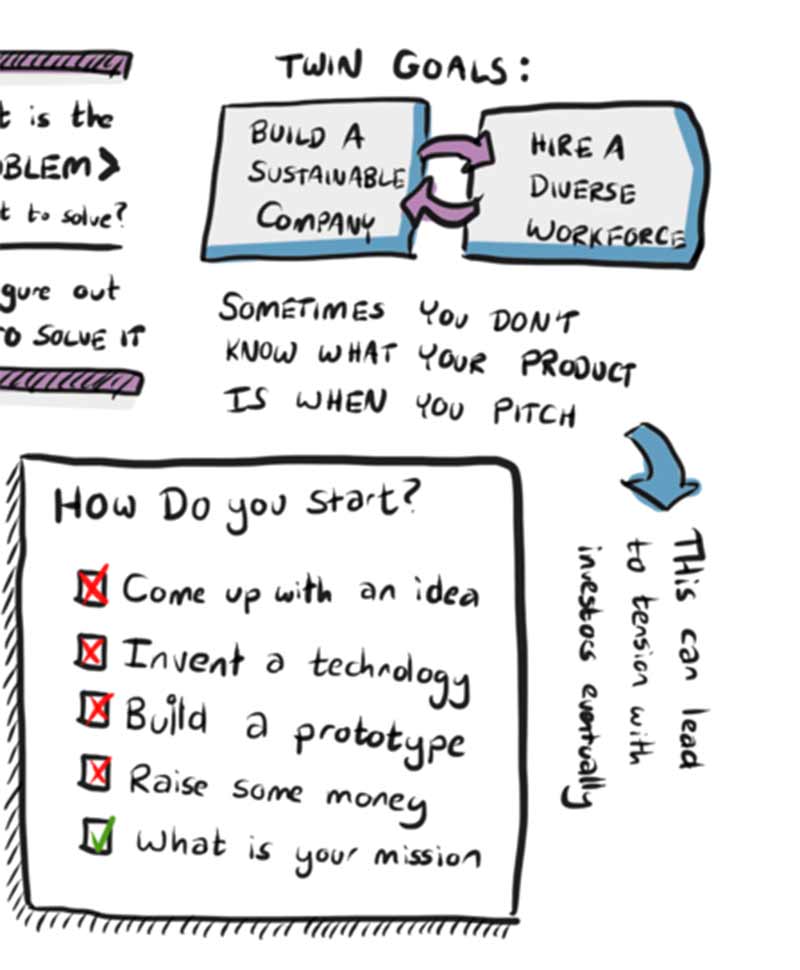 t is the
OBLEM >
t to solve?
gure out
TO SOLVE IT
TWIN GOALS:
BUILD A
SUSTAINABLE
COMPANY
HIRE A
DIVERSE
WORKFORCE
SOMETIMES YOU DON'T
KNOW WHAT YOUR PRODUCT
IS WHEN YOU PITCH
THis can lead
to tension with
investors eventually
How Do you start?
Come up with an idea
Invent a technology
Build a prototype
Raise some money
What is your mission